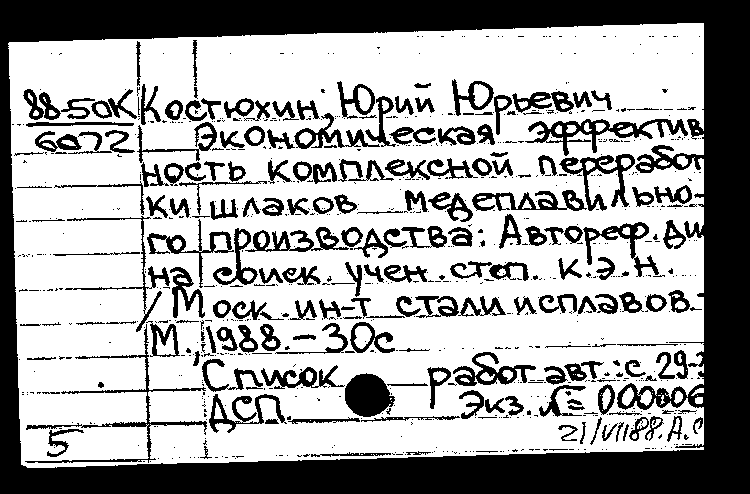 88-50К Костюхин, Юрий Юрьевич
6072 Экономическая эффектив
ность комплексной переработ
ки шлаков медеплавильно-
го производства: Автореф. ди
на соиск. учен. степ. к.э.н.
/ Моск. ин-т стали и сплавов.-
М., 1988. – 30с
Список работ авт.: с. 29-3
ДСП. Экз. № 000006
5 21/VII88. А.С